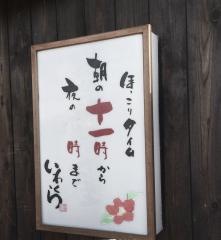 ほっこりタイム
朝の十一時から
夜の 時まで
いわくら